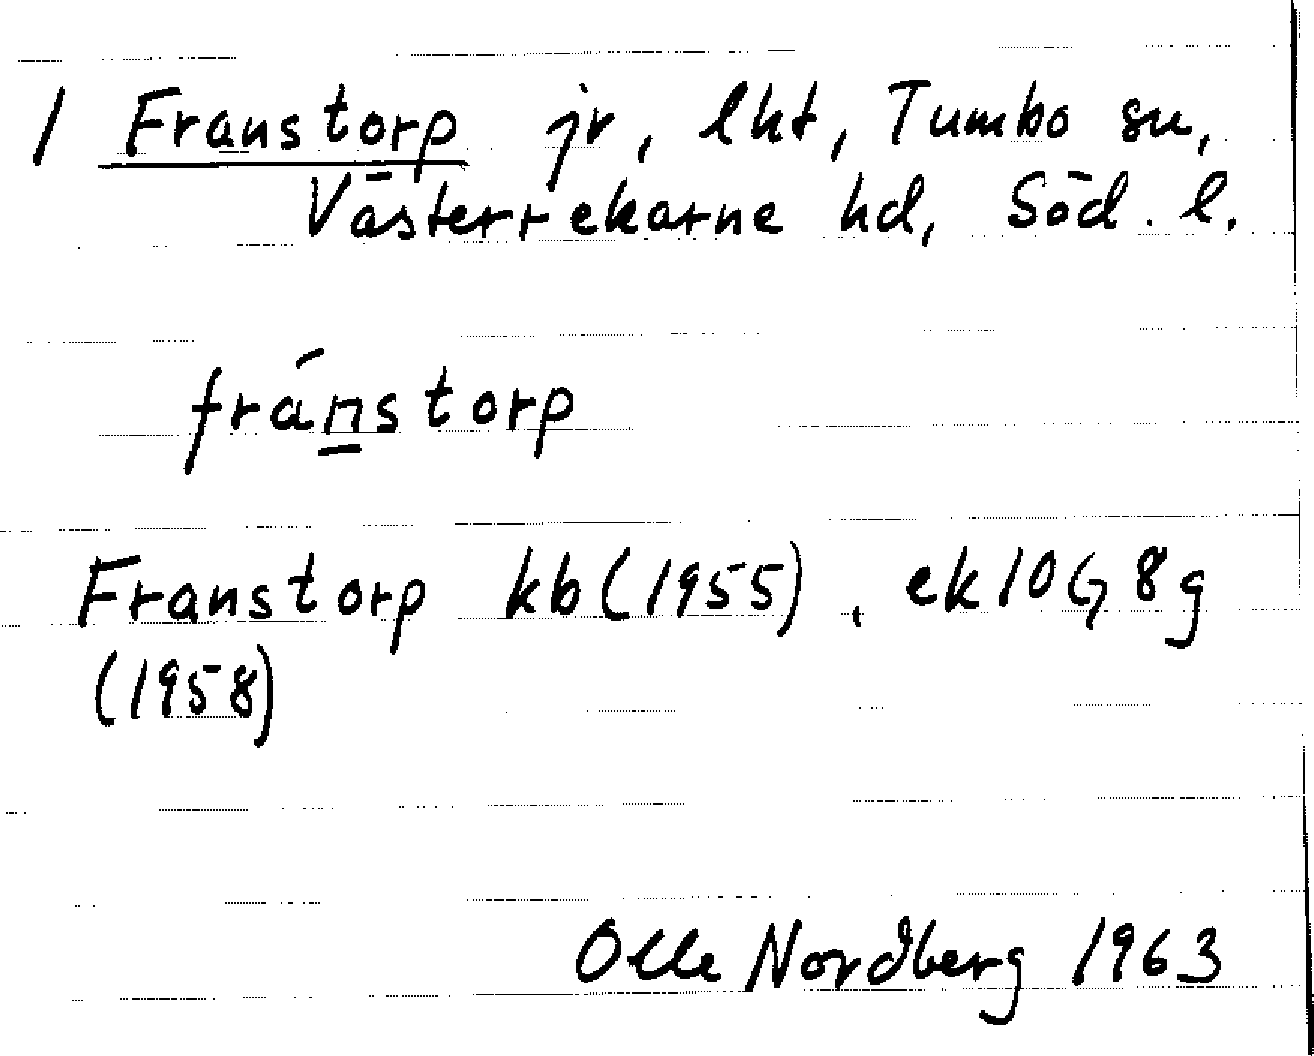 1 Franstorp jr, lht, Tumbo sn,
Västerrekarne hd, Söd. l.
fránstorp
Franstorp kb (1955), ek 10G 8g
(1958)
Olle Nordberg 1963